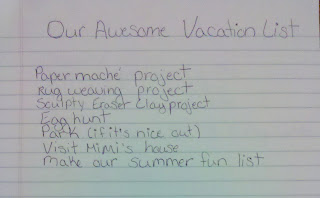 Our Awesome Vacation List
Paper maché project
Rug weaving project
Sculpty Eraser Clay project
Egg hunt
Park (if it's nice out)
Visit Mimi's house
Make our summer fun list